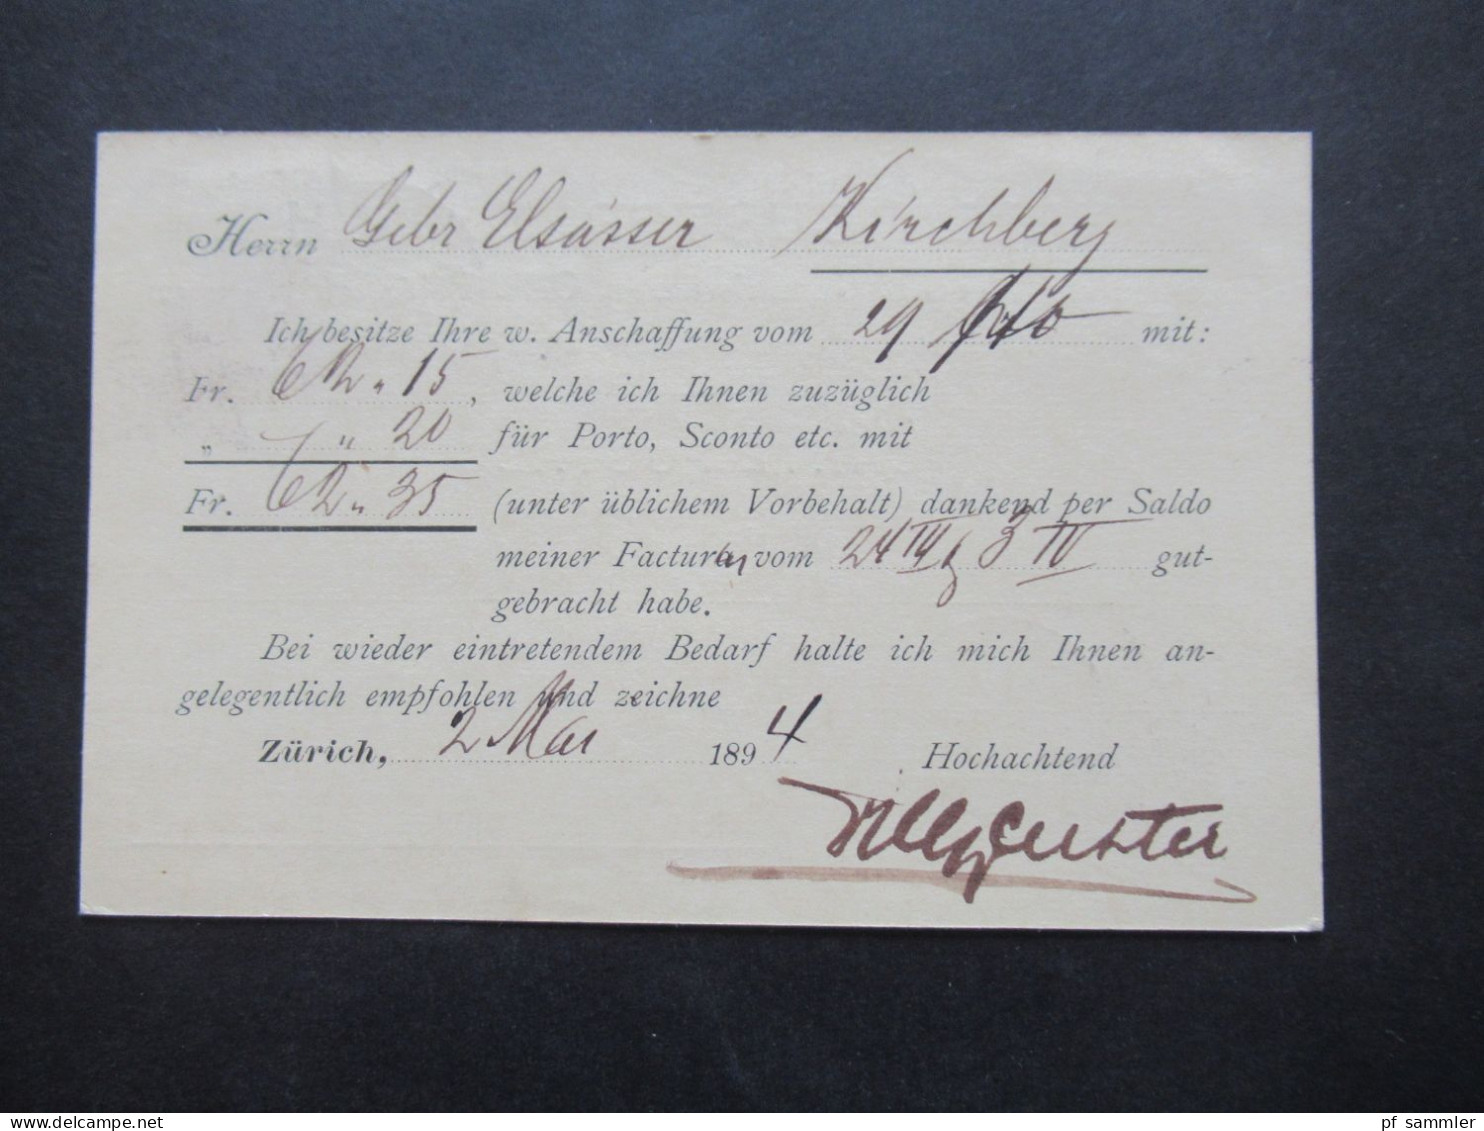 Herrn Gebr Elsässer Kirchberg
Ich besitze Ihre w. Anschaffung vom 29 mit:
Fr. 62 " 15, welche ich Ihnen zuzüglich
" " 20 für Porto, Sconto etc. mit
Fr. 62 " 35 (unter üblichem Vorbehalt) dankend per Saldo
meiner Facturen vom 24 III & 3 IV gut-
gebracht habe.
Bei wieder eintretendem Bedarf halte ich mich Ihnen an-
gelegentlich empfohlen und zeichne
Zürich, 2 Mai 1894 Hochachtend
delcampe.net
pf sammler